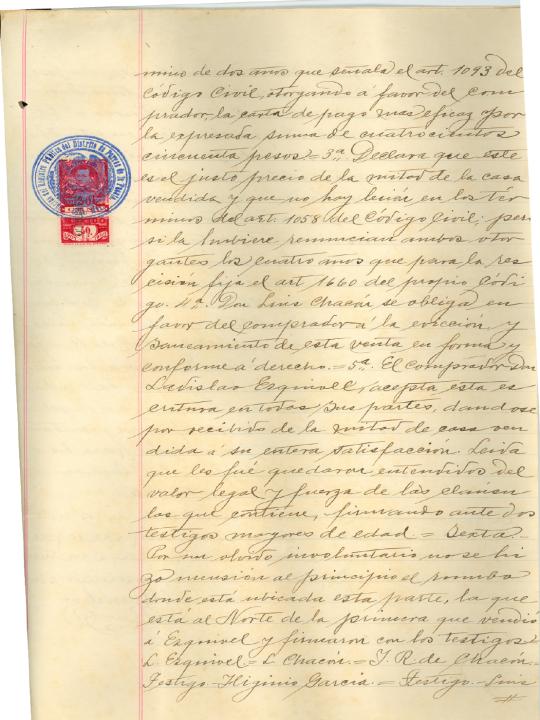 mino de dos años que señala el art. 1093 del
Código Civil, otorgando á favor del com
prador, la carta de pago mas eficaz por
la expresada suma de cuatrocientos
cincuenta pesos = 3ª Declara que este
es el justo precio de la mitod de la casa
vendida y que no hay lesión en los tér
minos del art. 1058 del Código Civil; pero
si la hubiere renuncian ambos otor
gantes los cuatro años que para la res
cisión fija el art 1660 del propio Códi
go. 4ª Don Luis Chacón se obliga en
favor del comprador á la evicción y
saneamiento de esta venta en forma y
conforme á derecho. = 5ª El Comprador Don
Ladislao Esquivel, acepta esta es
critura en todas sus partes, dandose
por recibido de la mitod de casa ven
dida á su entera satisfacción. Leida
que les fué quedaron entendidos del
valor legal y fuerza de las cláusu
las que contiene, firmando ante dos
testigos mayores de edad = Sexta =
Por un olvido involuntario no se hi
zo mensión al principio el rumbo
donde está ubicada esta parte, la que
está al Norte de la primera que vendió
á Esquivel y firmaron con los testigos =
L. Esquivel = L. Chacón. = J. R de Chacón.
Testigo. Higinio Garcia. = Testigo. Luis